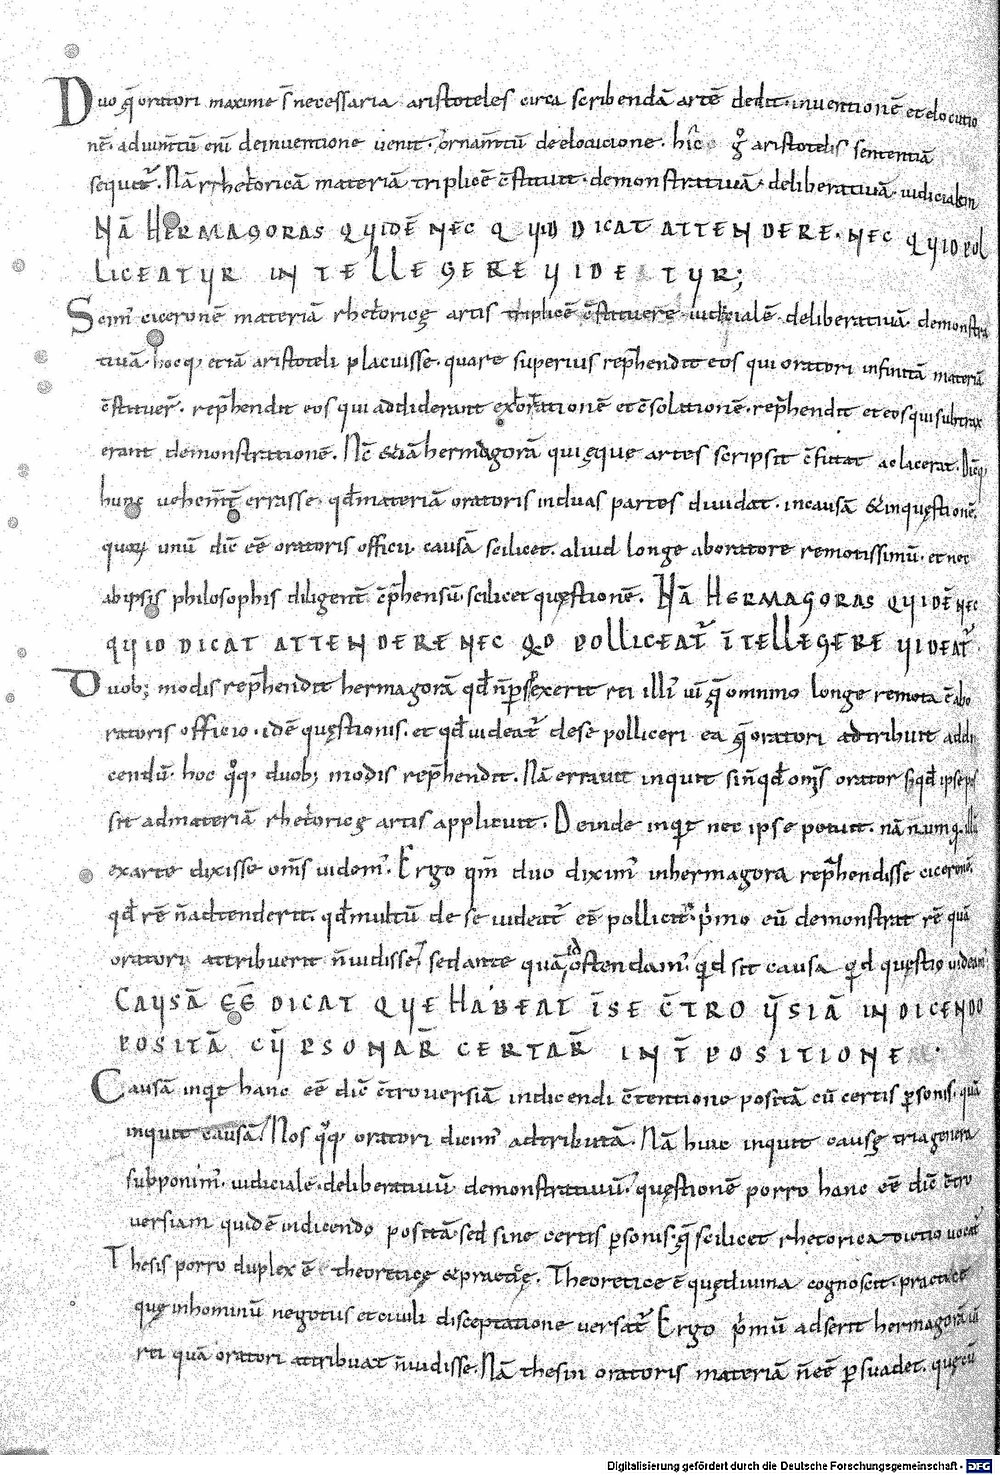 Duo q̄ oratori maxime s̄ necessaria aristoteles circa scribendā artē dedit· inuentionē et elocutio
nē· adium̄tū eni deinuentione uenit· ornam̄tū de elocucione· hic g° aristotelis sententiā
sequit᷑. Nā rhetoricā materiā triplicē c̄stituit· demonstratiuā· deliberatiuā· iudicialem
NĀ HERMAGORAS QVIDĒ NEC QVID DICAT ATTENDERE· NEC QVID POL
LICEATVR INTELLEGERE VIDEATVR;
Sētim᷑ ciceronē materiā rhetoricę artis triplicē c̄stituere· iudicialē· deliberatiuā demonstra
tiuā· hocq; etiā aristoteli placuisse· quare superius rep̄hendit eos qui oratori infinitā materiā
c̄stituer̄· rep̄hendit eos qui addiderant exhortationē et c̄solationē· rep̄hendit et eos qui subtrax
erant demonstrationē. Nc̄ & iā hermagorā qui ęque artes scripsit c̄futat ac lacerat. Dicq;
hunc uehem̄t̄ errasse· qđ materiā oratoris in duas partes diuidat· in causā & in quęstionē.
quoꝝ unū dic̄ eē oratoris officii· causā scilicet· aliud longe ab oratore remotissimū· et nec
ab ipsis philosophis diligent̄ c̄p̄hensū· scilicet quęstionē. NĀ HERMAGORAS QVIDĒ NEC
QVID DICAT ATTENDERE NEC QD POLLICEAT᷑ ĪTELLEGERE VIDEAT᷑.
Duob; modis rep̄hendit hermagorā qđ n̄ persp̄exerit rei illi᷑ uī q̄ omnino longe remota ē abo
ratoris officio· idē quęstionis· et qđ uideat᷑ de se polliceri ea q̄ oratori adtribuit addi
cendū· hoc q̊q; duob; modis rep̄hendit. Nā errauit inquit si n̄ qđ om̄s orator sꝫ qđ ipse pos
sit ad materiā rhetoricę artis applicuit. Deinde inqͥt nec ipse potuit. nā nūmq̄ illū
ex arte dixisse om̄s uidem᷑. Ergo qm̄ duo dixim᷑ in hermagora rep̄hendisse ciceronē·
qđ rē n̄ adtenderit· qđ multū de se uideat᷑ eē pollicit᷑· p̄mo eū demonstrat rē quā
oratori attribuerit n̄ uidisse· sed ante quā id ostendam᷑· qͥd sit causa qͥd quęstio uideam᷑
CAVSĀ EĒ DICAT QVE HABEAT ĪSE C̄TROV̄SIĀ IN DICENDO
POSITĀ CV̄ P̄SONAR̄ CERTAR̄ INT̄POSITIONE·
Causā inqͥt hanc eē dic̄ c̄trouersiā in dicendi c̄tentione positā cū certis p̄sonis· quā
inquit causā· Nos q̊q; oratori dicim᷑ adtributā· Nā huic inquit causę tria genera
subponim᷑· iudiciale· deliberatiuū demonstratiuū· quęstionē porro hanc eē dic̄ c̄tro
uersiam quidē in dicendo positā· sed sine certis p̄sonis· q̄ scilicet rhetorica dictio uocat᷑
Thesis porro duplex ē theoretice & practicę. Theoretice ē quę diuina cognoscit· practice
quę in hominū negotiis et ciuili disceptatione uersat᷑ Ergo p̄mū adserit hermagorā uī
rei quā oratori attribuat n̄ uidisse. Nā thesin oratoris materiā n̄ eē persuadet· quę cū
Digitalisierung gefördert durch die Deutsche Forschungsgemeinschaft - DFG